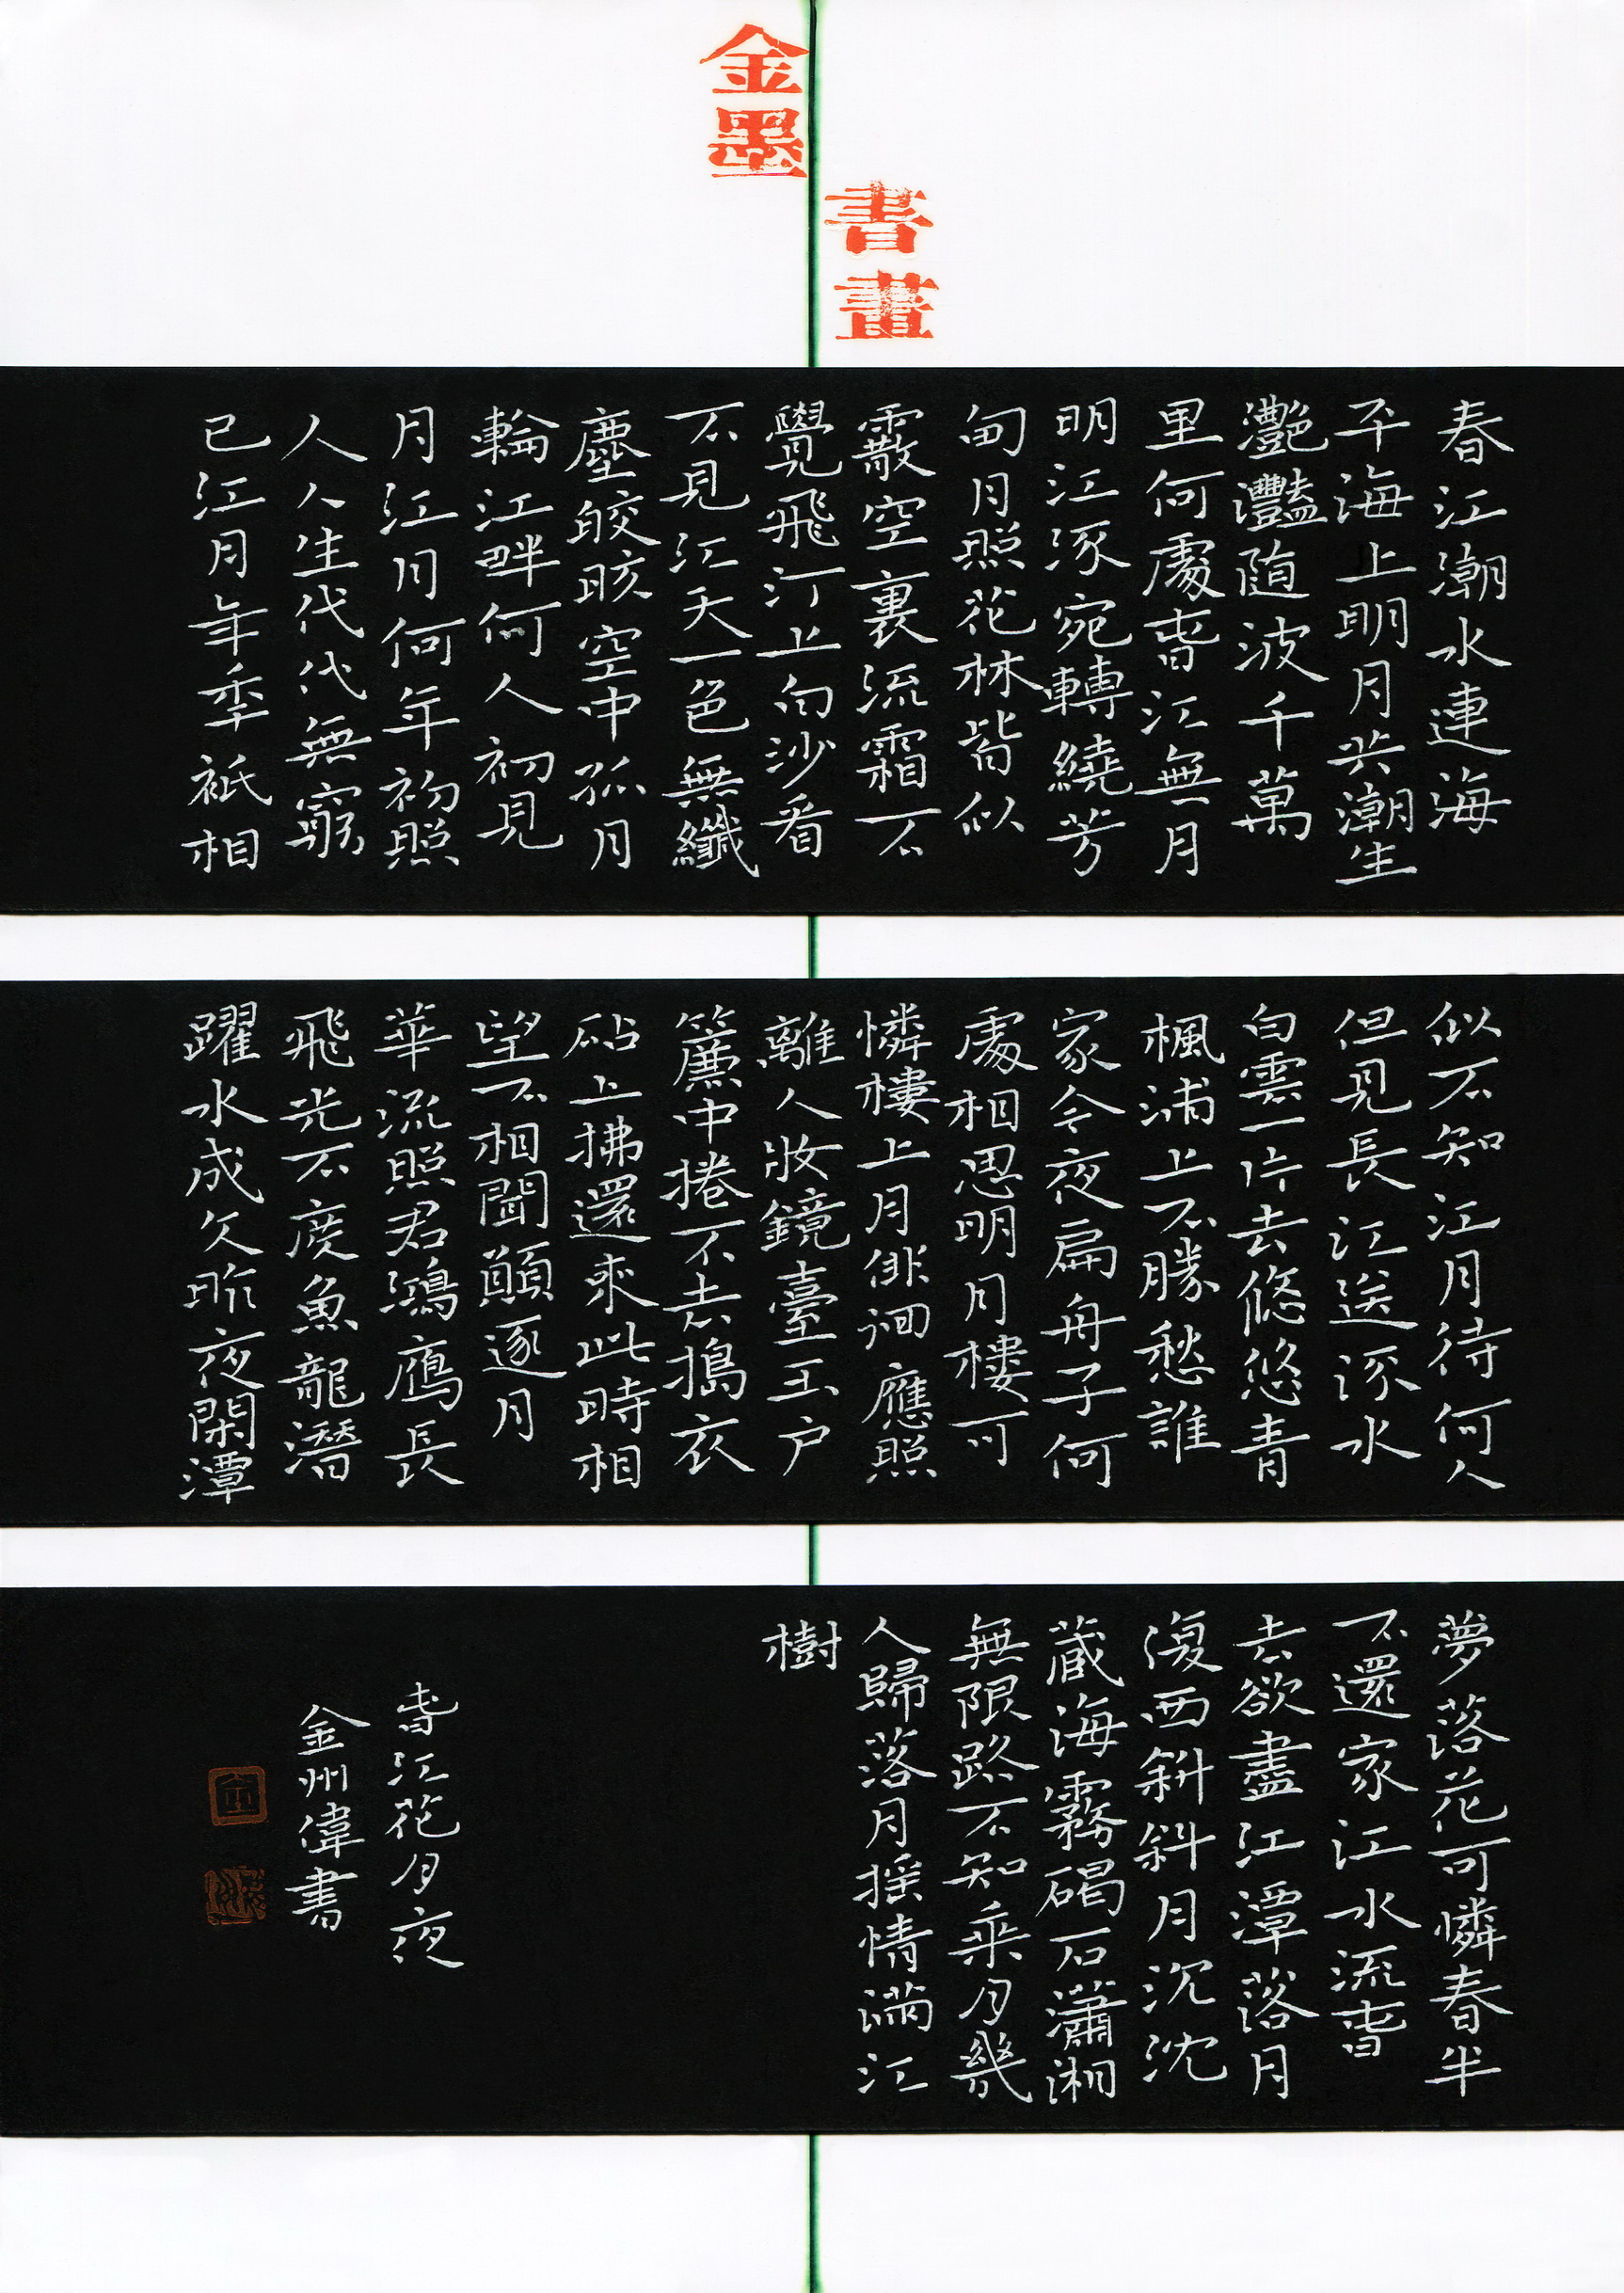 金墨
書畫
春江潮水連海
平海上明月共潮生
灧灩随波千萬
里何處春江無月
明江流宛轉繞芳
甸月照花林皆似
霰空裏流霜不
覺飛汀上白沙看
不見江天一色無纖
塵皎皎空中孤月
輪江畔何人初見
月江月何年初照
人人生代代無窮
已江月年年祇相
似不知江月待何人
但見長江送流水
白雲一片去悠悠青
楓浦上不勝愁誰
家今夜扁舟子何
處相思明月樓可
憐樓上月俳徊應照
離人妝鏡臺玉戶
簾中捲不去搗衣
砧上拂還來此時相
望不相聞願逐月
華流照君鴻鴈長
飛光不度魚龍潛
躍水成文昨夜閑潭
夢落花可憐春半
不還家江水流春
去欲盡江潭落月
復西斜斜月沉沈
藏海霧碣石瀟湘
無限路不知乘月幾
人歸落月摇情滿江
樹
春江花月夜
金州偉書